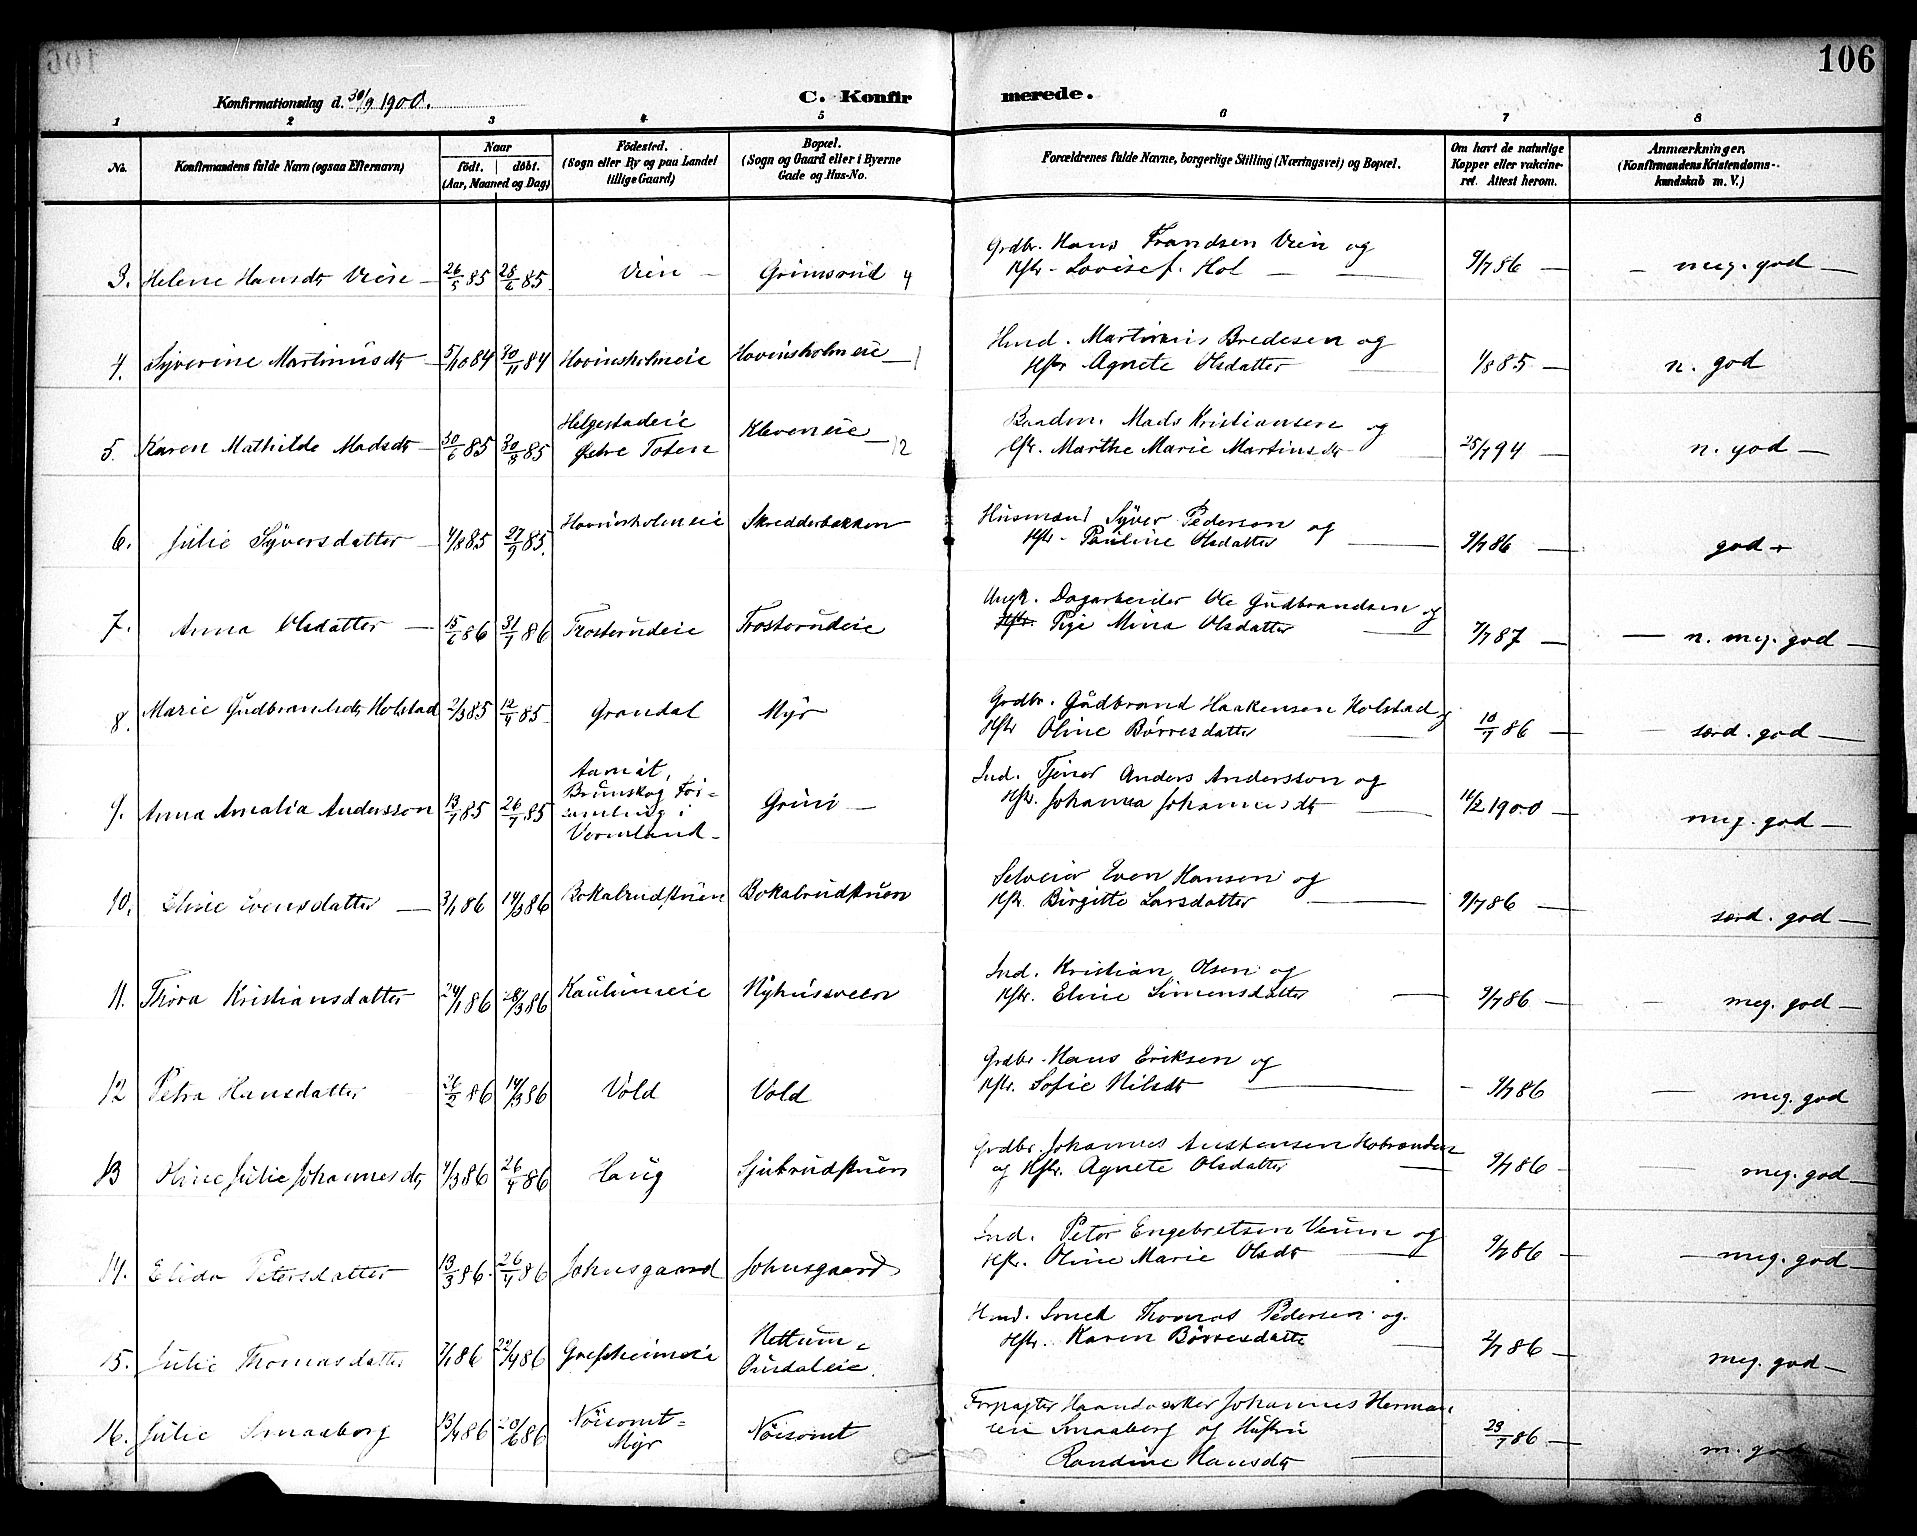 106
Konfirmationsdag d. 30/9 1900.
C. Konfir merede.
1 2 3 4 5 6 7 8
No. Konfirmandens fulde Navn (ogsaa Efternavn) Naar født. døbt. (Aar, Maaned og Dag) Fødested. (Sogn eller By og paa Landet tillige Gaard) Bopæl. (Sogn og Gaard eller i Byerne Gade og Hus-No. Forældrenes fulde Navne, borgerlige Stilling (Næringsvei) og Bopæl. Om havt de naturlige Kopper eller vakcineret. Attest herom. Anmærkninger. (Konfirmandens Kristendomskundskab m. V.)
3. Helene Hansdtr Vien 26/5 85 28/6 85 Vien Grimsrud 4 Grdbr. Hans Frandsen Vien og
Hstr. Lovise f. Hol 9/7 86 meg. god
4. Syverine Martinusdtr 5/10 84 30/11 84 Hovinsholmeie Hovinsholmeie 1 Hmd. Martinus Bredesen og
Hstr Agnete Olsdatter 1/8 85 n. god
5. Karen Mathilde Madsdtr 30/6 85 30/8 85 Helgestadeie
Østre Toten Kleveneie 12 Mads Kristiansen og
Marthe Marie Martinsdtr 25/7 94 n. god
6. Julie Syversdatter 4/8 85 27/9 85 Hovinsholmeie Skredderbakken Husmand Syver Pederson og
Hstr. Pauline Olsdatter 9/7 86 god
7. Anna Olsdatter 15/6 86 31/7 86 Trosterudeie Trosterudeie Ungk. Dagarbeider Ole Gudbrandsen og
Hstr. Pige Mina Olsdatter 7/7 87 n. meg. god
8. Marie Gudbrandsdtr Holstad 2/3 85 12/4 85 Grandal Myr Grdbr. Gudbrand Haakensen Holstad og
Hstr Oline Børresdatter 10/7 86 særd. god
9. Anna Amalia Andersson 13/7 85 26/7 85 Aamåt,
Brunskog För-
samling i
Vermland Gruni Ind. Tjener Anders Andersson og
Hstr. Johanna Johannesdtr 16/2 1900 meg. god
10. Eline Evensdatter 3/1 86 14/3 86 Bokalrudstuen Bokalrudstuen Selveier Even Hansen og
Hstr. Birgitte Larsdatter 9/7 86 særd. god
11. Thora Kristiansdatter 24/1 86 28/3 86 Kaulumeie Nyhussveen Ind. Kristian Olsen og
Hstr. Eline Simensdatter 9/7 86 meg. god
12 Petra Hansdatter 26/2 86 14/3 86 Vold Vold Grdbr. Hans Eriksen og
Hstr. Sofie Nilsdtr 9/7 86 meg. god
13 Oline Julie Johannesdtr 4/3 86 26/4 86 Haug Sjulrudstuen Grdbr. Johannes
og Hstr. Agnete Olsdatter 9/7 86 meg. god
14. Elida Petersdatter 13/3 86 26/4 86 Johnsgaard Johnsgaard Ind. Peter Engebretsen Veum og
Hstr. Oline Marie Olsdtr 9/7 86 meg. god
15. Julie Thomasdatter 7/1 86 22/4 86 Grefsheimeie Nettum-
Hmd. Smed Thomas Pedersen og
Hstr. Karen Børresdatter 2/7 86 meg. god
16. Julie Smaaborg 13/4 86 20/6 86 Nöisomt-
Myr Nöisomt Forpagter Haandverker Johannes Herman-
sen Smaaborg og Hustru
Randine Hansdtr 23/7 86 m. god